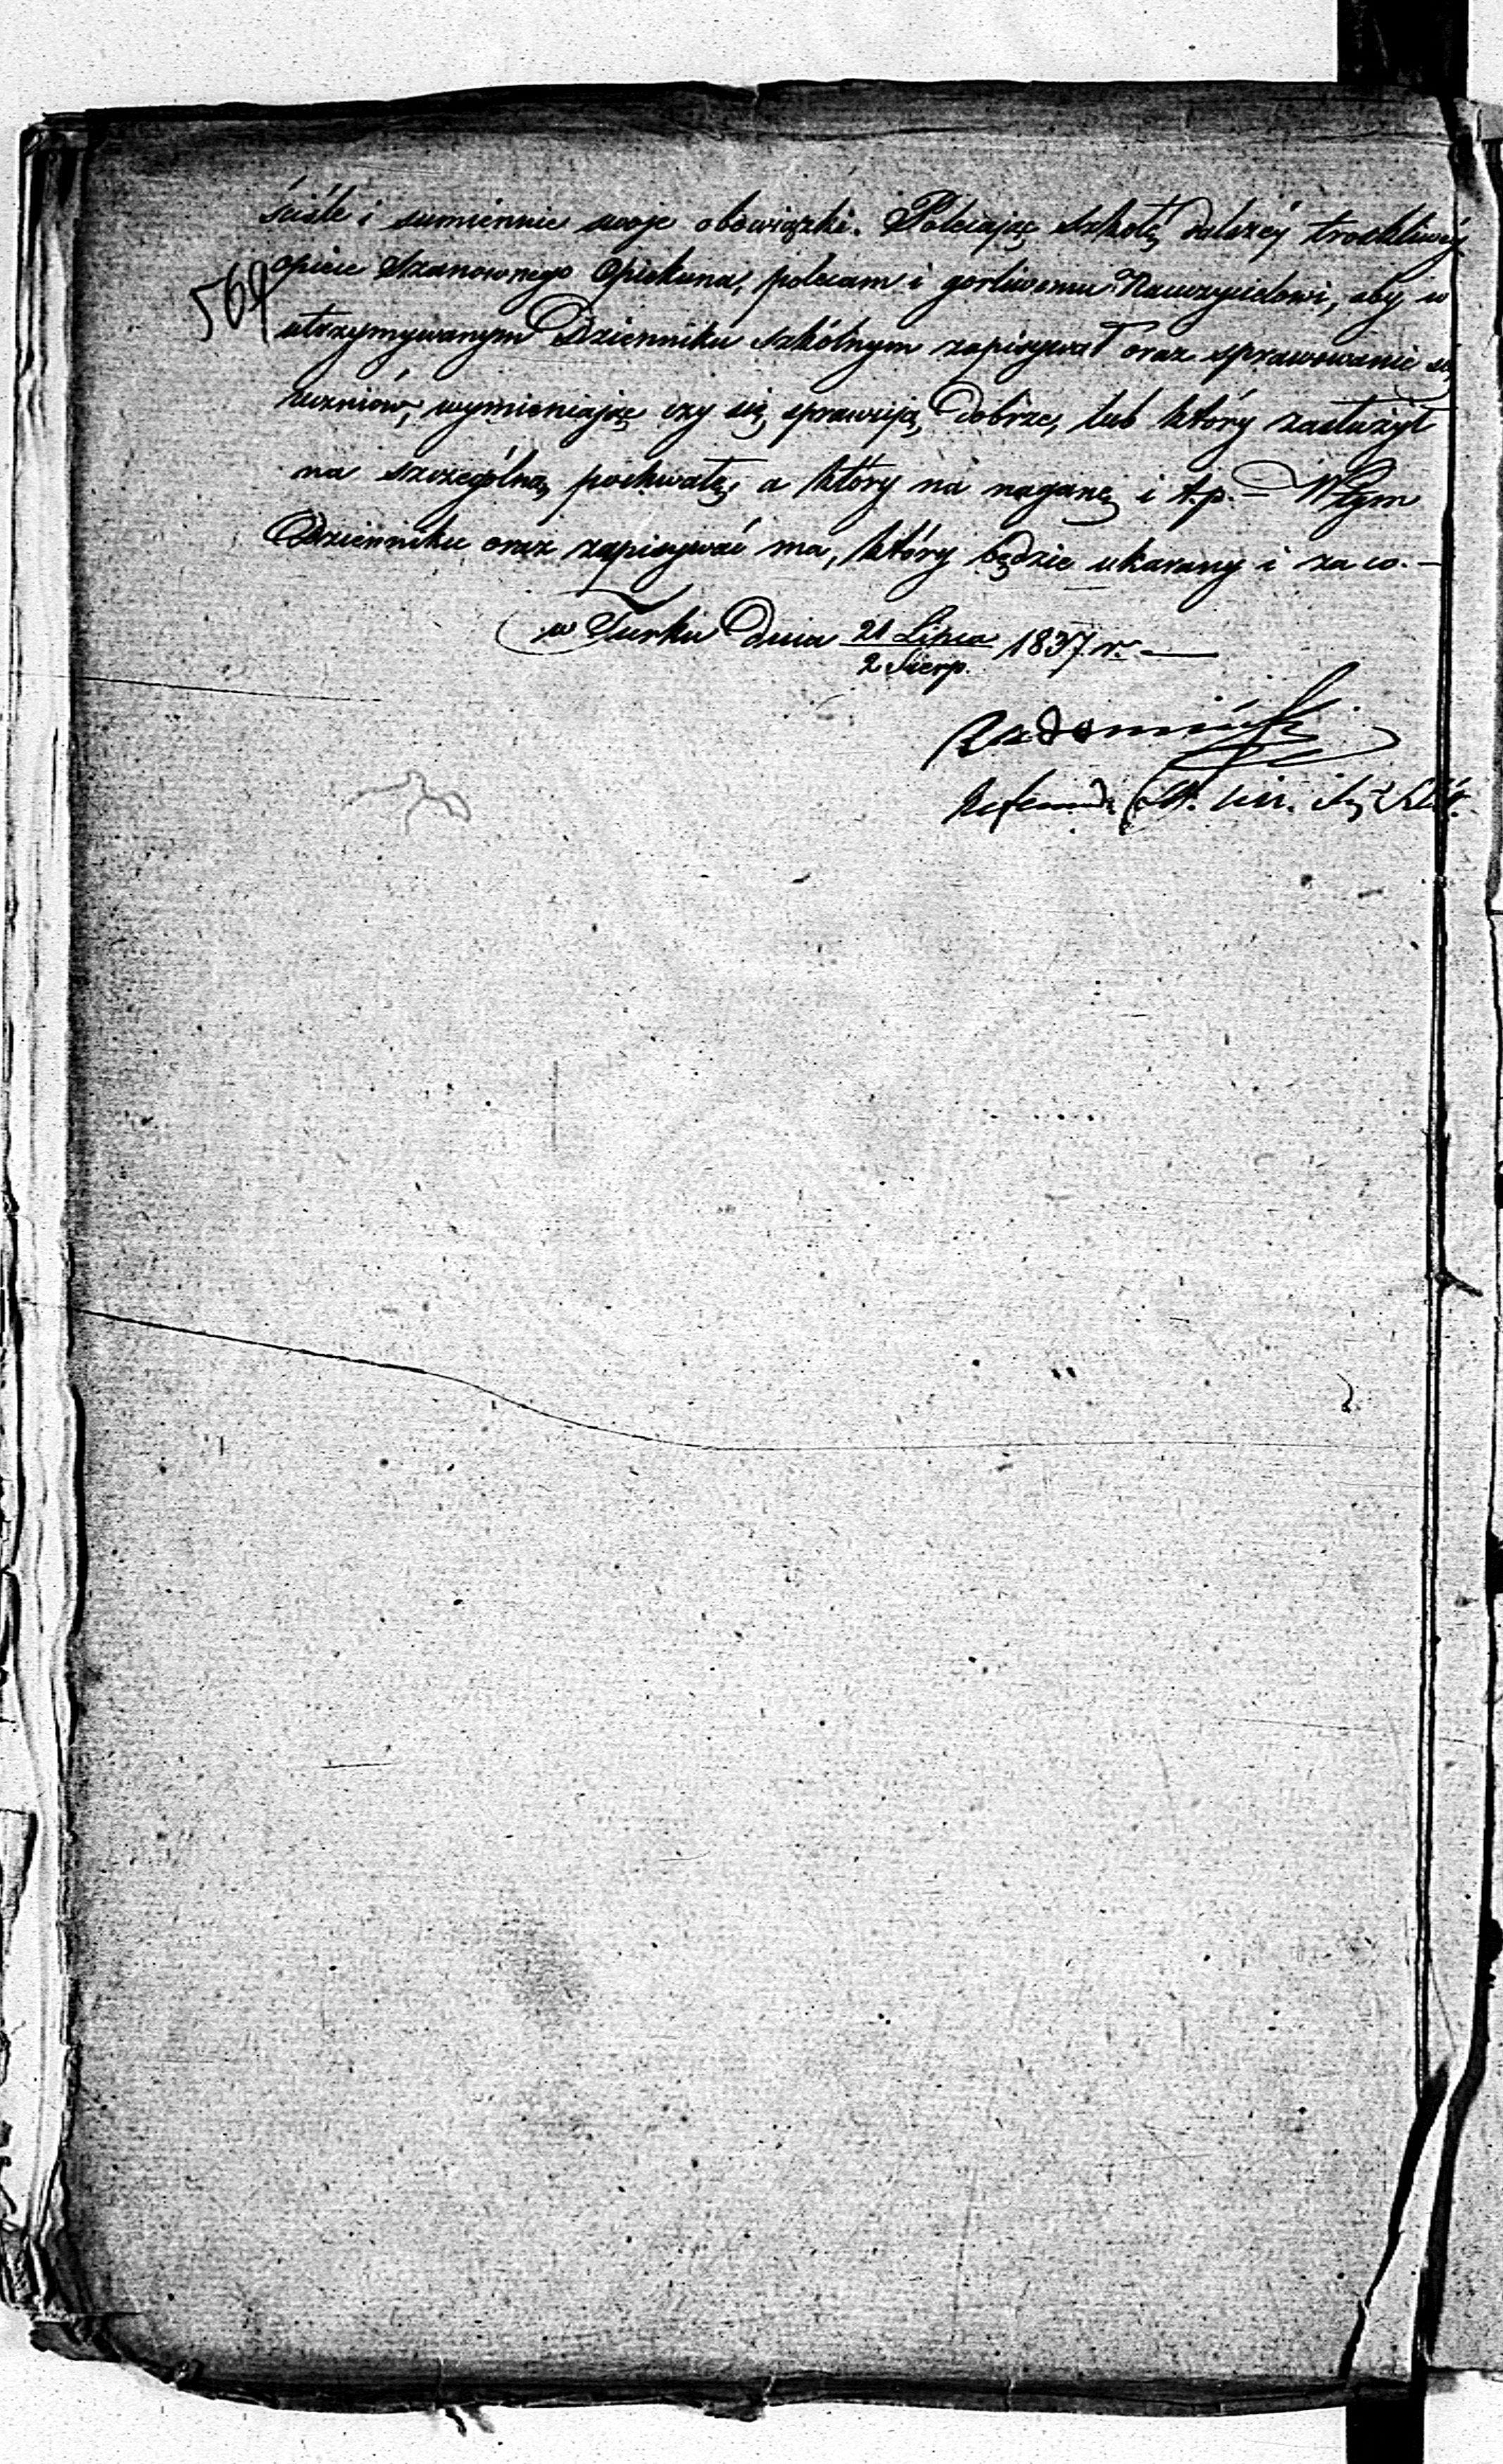 ściśle i sumiennie swoje obowiązki. Polecając szkołę dalszéj troskliwéj
opiece Szanownego Opiekuna, polecam i gorliwemu Nauczycielowi, aby w
564
utrzymywanym Dzienniku szkólnym zapisywał oraz sprawowanie się
uczniów, wymieniając czy się sprawują dobrze, lub który zasłużył
na szczególną pochwałę, a który na naganę i t.p. – W tym
Dzienniku oraz zapisywać ma, który będzie ukarany i za co. –
w Turku dnia 21 Lipca / 2 Sierp. 1837 r. —
Radomiński